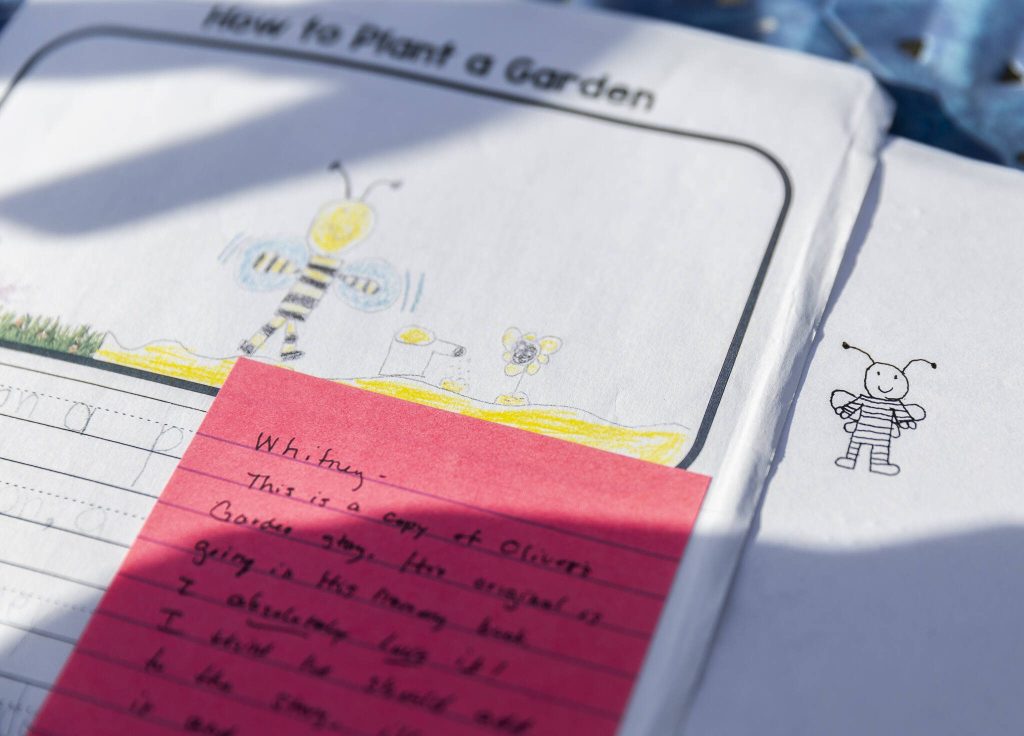 How to Plant a Garden
on a p
Whitney-
This is a copy of Oliver's
Garden story. His original is
going in his memory book
I absolutely love it!
I think he should add
to the story.
it